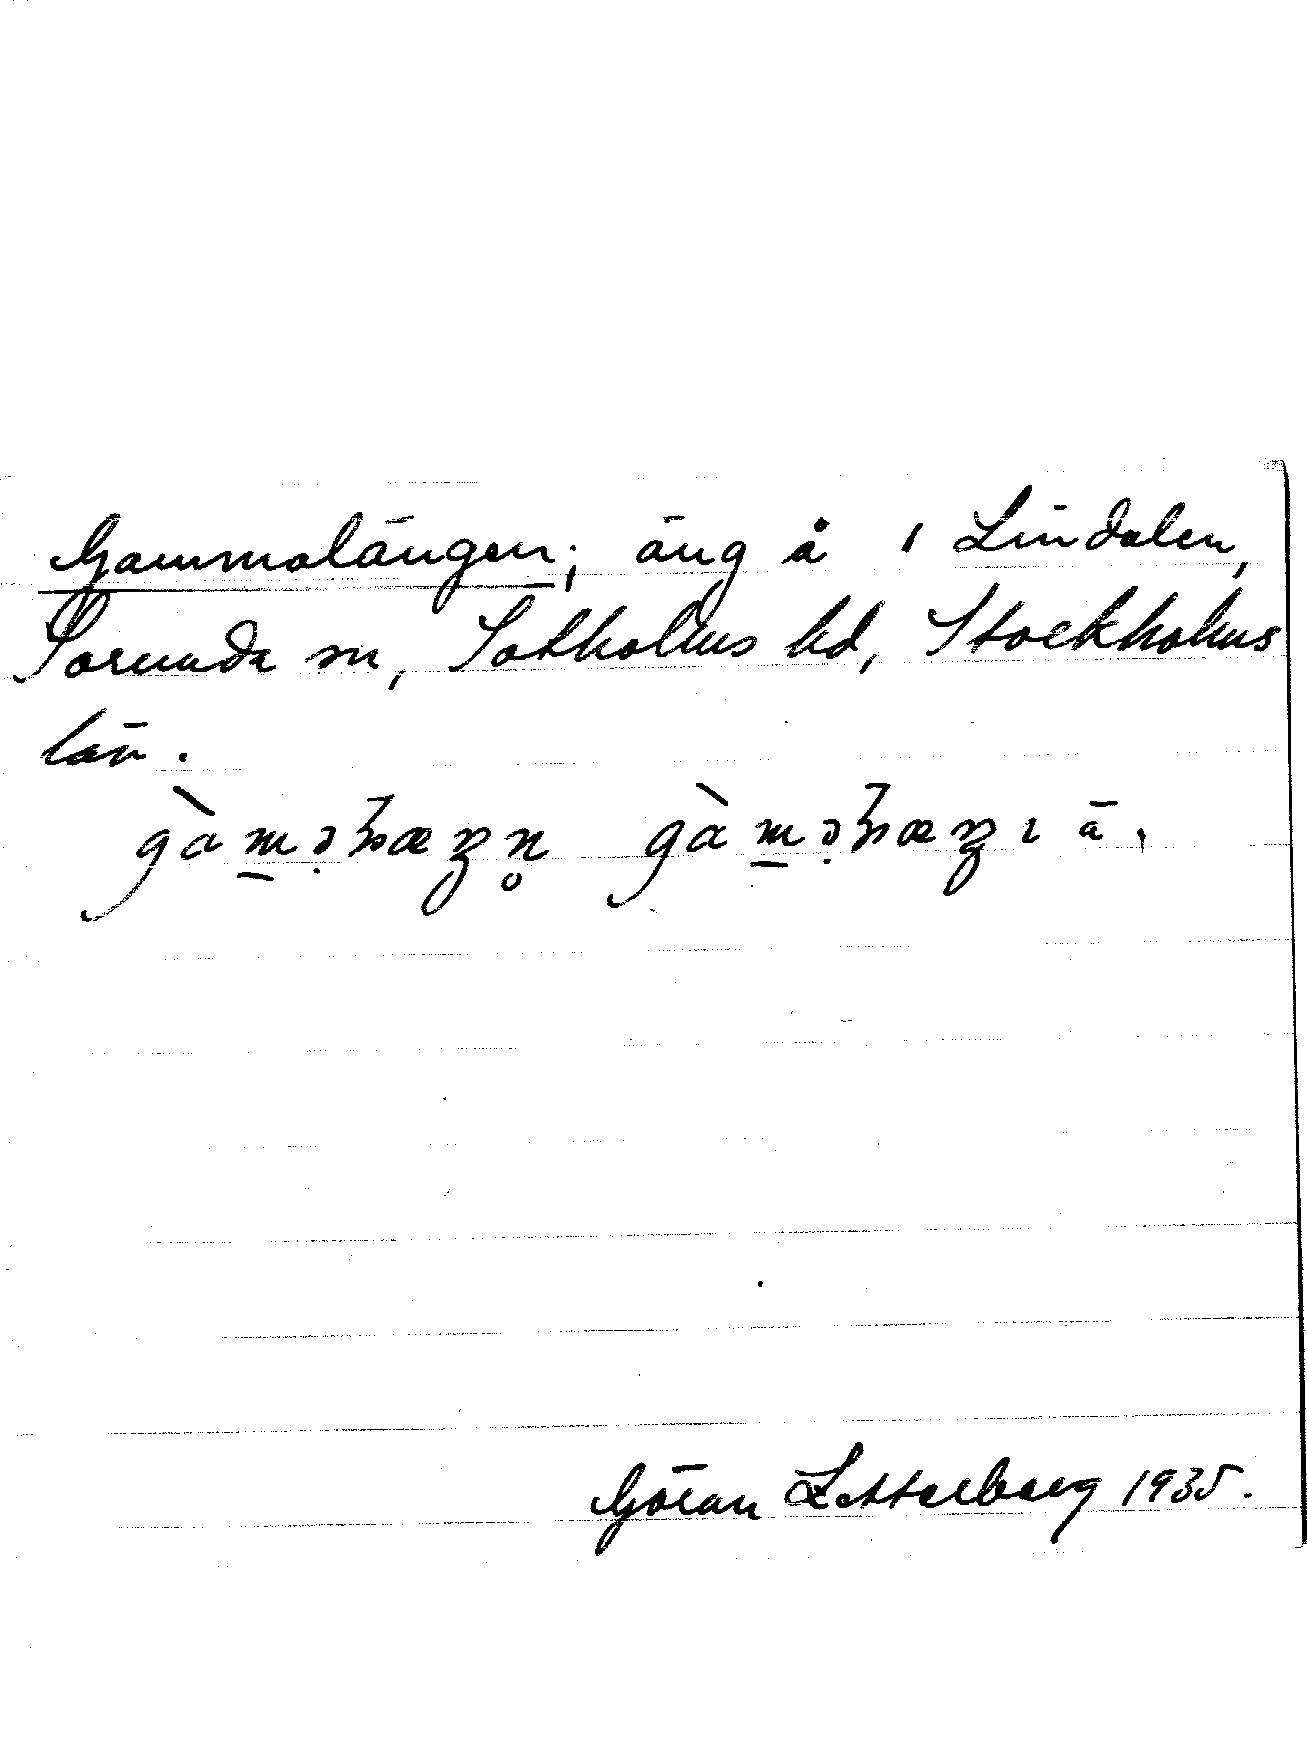 Gammalängen; äng å 1 Lindalen,
Sorunda sn, Sotholms hd, Stockholms
län.
Göran Zetterberg 1935.